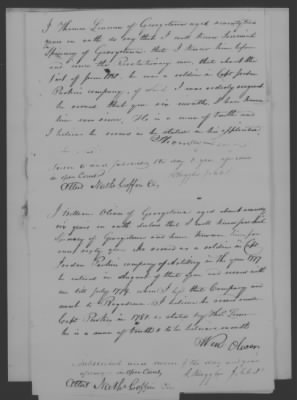 I Thomas Linnen of Georgetown aged seventy two
years on oath do say that I well knew Jeremiah
Spinney of Georgetown, that I knew him before
and since the Revolutionary war, that about the
first of June 1781 he was a soldier in Capt Jordan
Parkers company, of which I was orderly sergeant
he served that year six months, I have known
him ever since, He is a man of truth and
I believe he served as he stated in his application
Thomas
Sworn to and subscribed the day & year aforesaid
in open Court
Attest Nath Coffin Clk
I William Oliver of Georgetown aged about seventy
six years on oath declare that I well knew Jeremiah
Spinney of Georgetown and have known him for
some sixty years. He served as a soldier in Capt
Jordan Parkers company of Artillery in the year 1777
he entered in August of that year and served with
me till July 1779 when I left that Company and
went to I believe he served under
Capt Parker in 1781 as stated by
he is a man of truth & to be believed
Wm Oliver
Subscribed and sworn to the day and year
aforesaid in open Court,
Attest Nath Coffin Clk